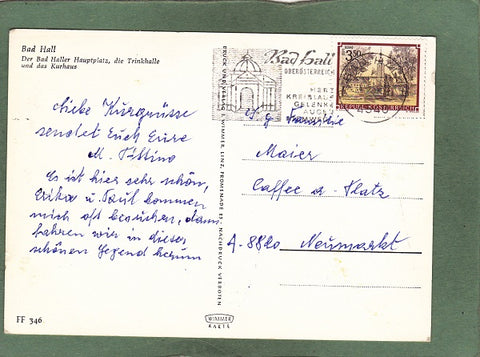 Bad Hall
Der Bad Haller Hauptplatz, die Trinkhalle
und das Kurhaus
Liebe Kurgrüsse
sendet Euch Eure
M.
Es ist hier sehr schön,
Erika u Paul kommen
mich oft besuchen, dann
fahren wir in dieser
schönen Gegend herum
FF 346
Bad Hall
OBERÖSTERREICH
HERZ
KREISLAUF
GELENKE
AUGEN
3.50
REPUBLIK ÖSTERREICH
Familie
Maier
Caffee a. Platz
A-8820 Neumarkt
DRUCK UND VERLAG WIMMER, LINZ, PROMENADE 23, NACHDRUCK VERBOTEN
WIMMER
KARTE